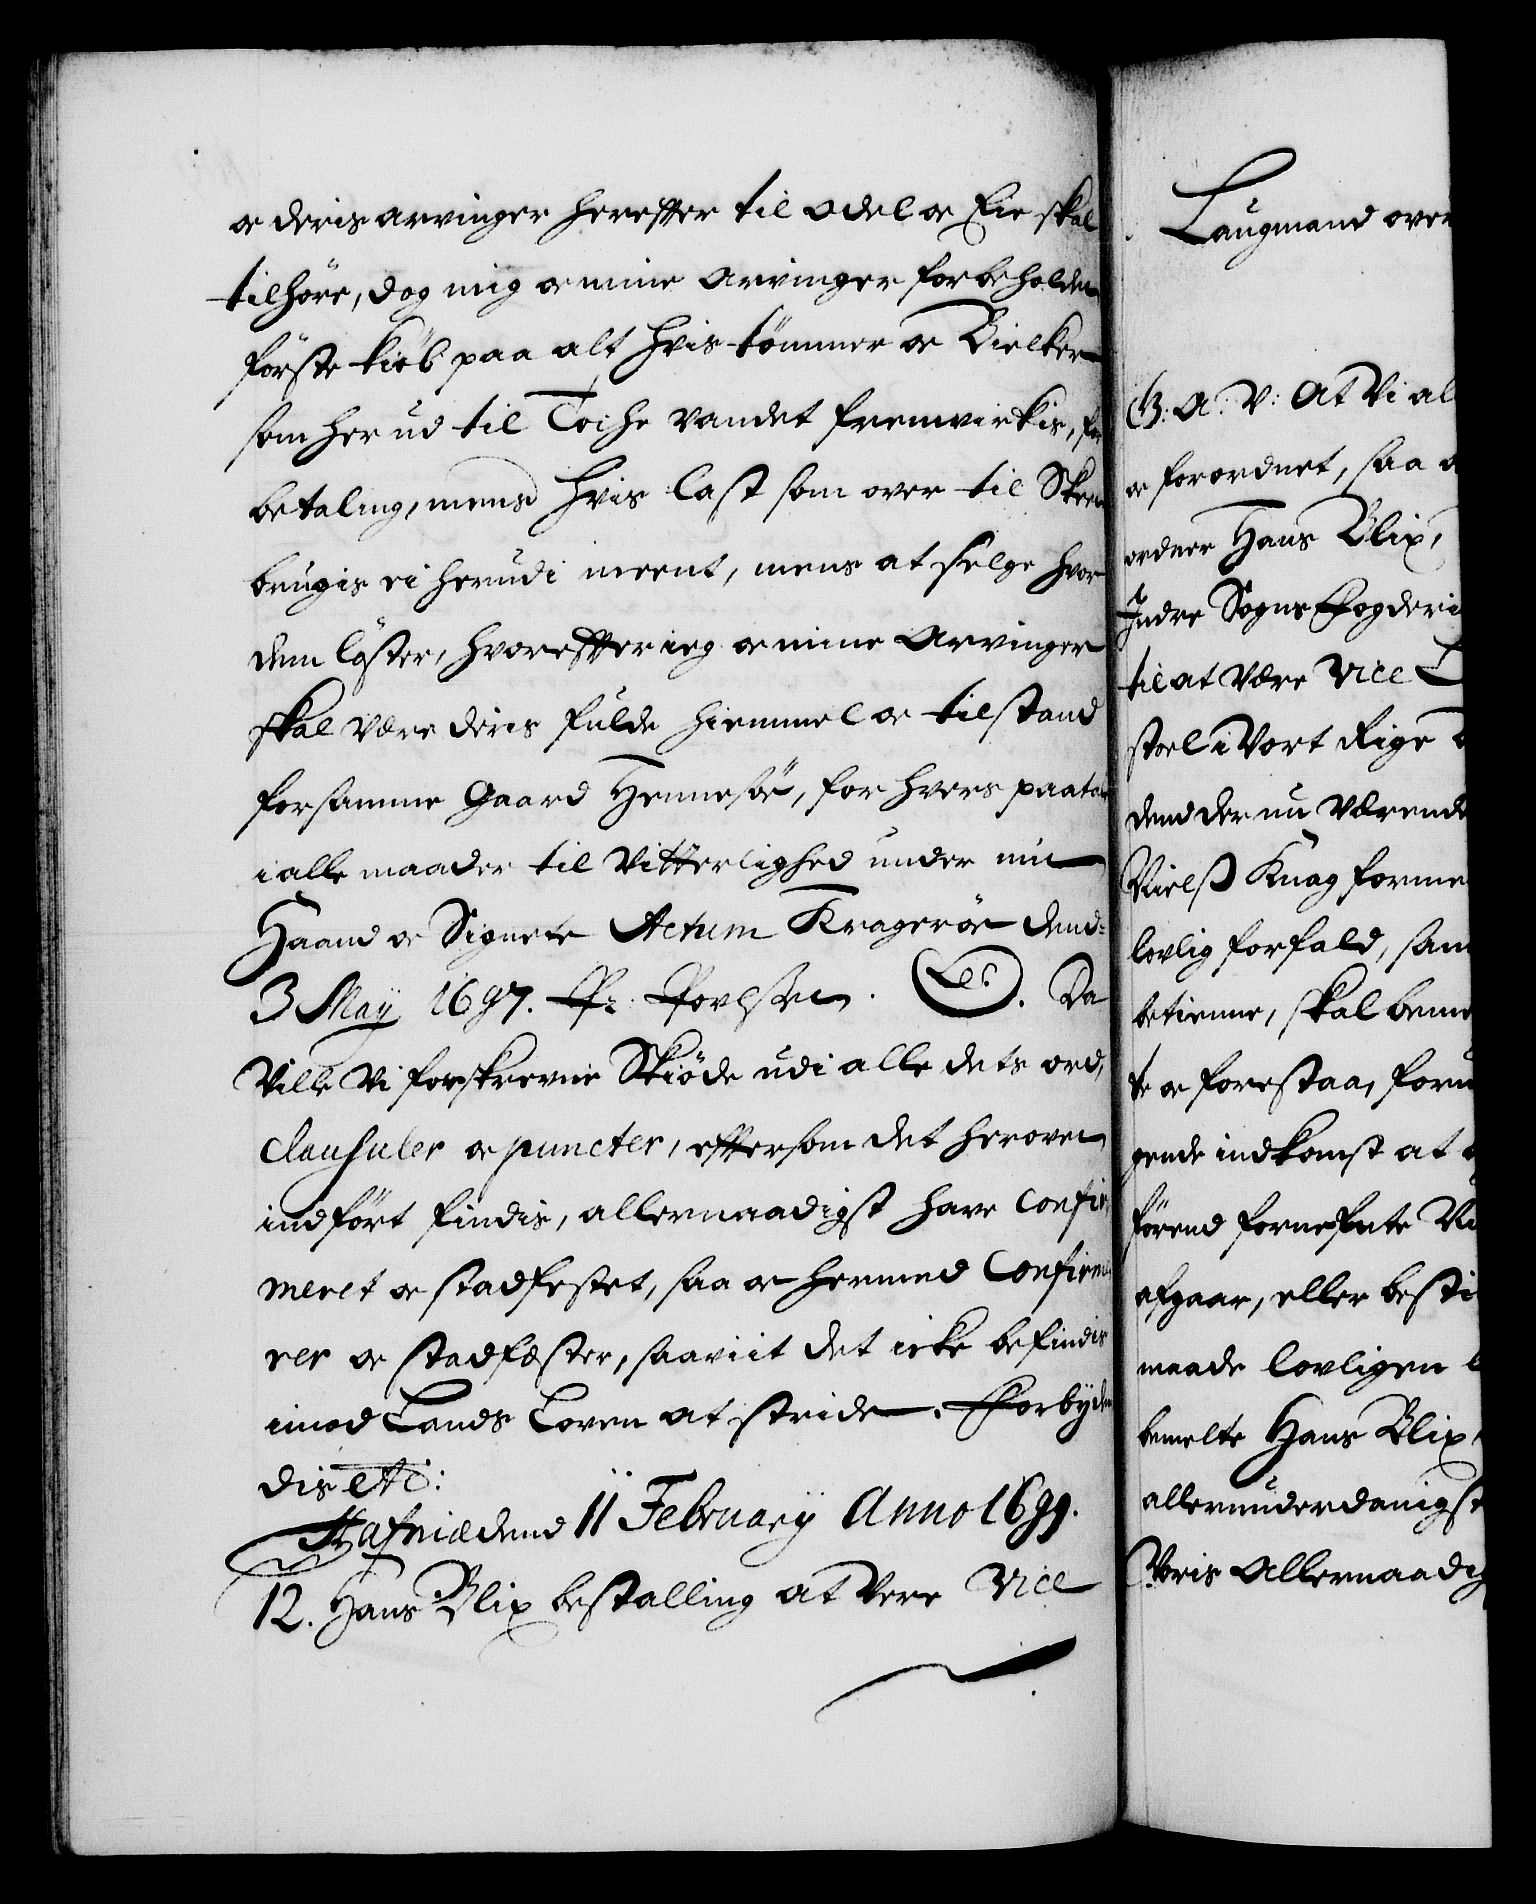 oc deris arvinger herefter til odel oc Eie skal
tilhöre, dog mig oc mine Arvinger forbeholden
förste kiöb paa alt hvis tömmer oc Bielker
som her ud til Toche vandet fremvirkis, for
betaling, mens hvis last som over til Skeen
brugis ei herudi meent, mens at selge hvor
dem lyster, hvorefter ieg oc mine Arvinger
skal være deris fulde hiemmel oc tilstand
for samme Gaard Hennesöe, for hvers paatale
i alle maader til Vitterlighed under min
Haand oc Signete Actum Kragerøe dend
3 Maÿ 1697. Pr: Povelsen. LS. Da
Ville Vi forskrevne Skiöde udi alle dets ord,
clausuler oc puncter, eftersom det heroven
indfört findis, allernaadigst have confir
meret oc stadfestet, saa oc hermed Confirme
rer oc stadfæster, saaviit det icke befindis
imod Lands Loven at stride. Forbyden
dis etc:
Hafniæ dend 11 Februarÿ Anno 1699.
12. Hans Blix bestalling at Vere Vice
Laugmand over
G. A. V: At Vi al
oc forordnet, saa o
ordner Hans Blix,
Indre Sogns Fogderi
til at være Vice L
stoel i Vort Rige
dend der nu Værende
Nielß Knag forme
lovlig forfald, sam
betienne, skal beme
te oc forestaa, foru
gende indkomst at
förend fornefnte Ni
afgaar, eller besti
maade lovligen
bemelte Hans Blix,
allerunderdanigst
Voris Allernaadig